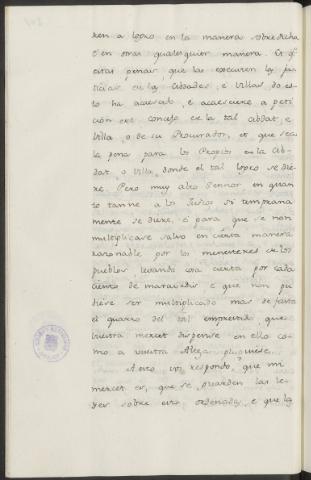 ren a logro en la manera sobredicha
o en otras qualesquier manera. Et q.e
estas penas, que las executen los jus
ticias en las Cibdades, e Villas do es
to ha acaescido, e acaesciere, a peti
cion del concejo de la tal cibdat, e
Villa, o de su Procurador, et que sea
la pena para los Propios en la Cib
dat, o Villa, donde el tal logro se die
re. Pero muy alto Sennor en quan
to tanne a los Judios si temprana
mente se diere, e para que se non
multiplicase salvo en cierta manera
rasonable, por los menesteres de los
pueblos levando cosa cierta por cada
ciento de maravedis e que non pu
diese ser multiplicado mas de fasta
el quarto del tal emprestido que
vuestra merced dispense en ello co
mo a vuestra Alteza pluguiese.
A esto vos respondo, que mi
merced es, que se guarden las le
yes sobre esto ordenadas, e que los